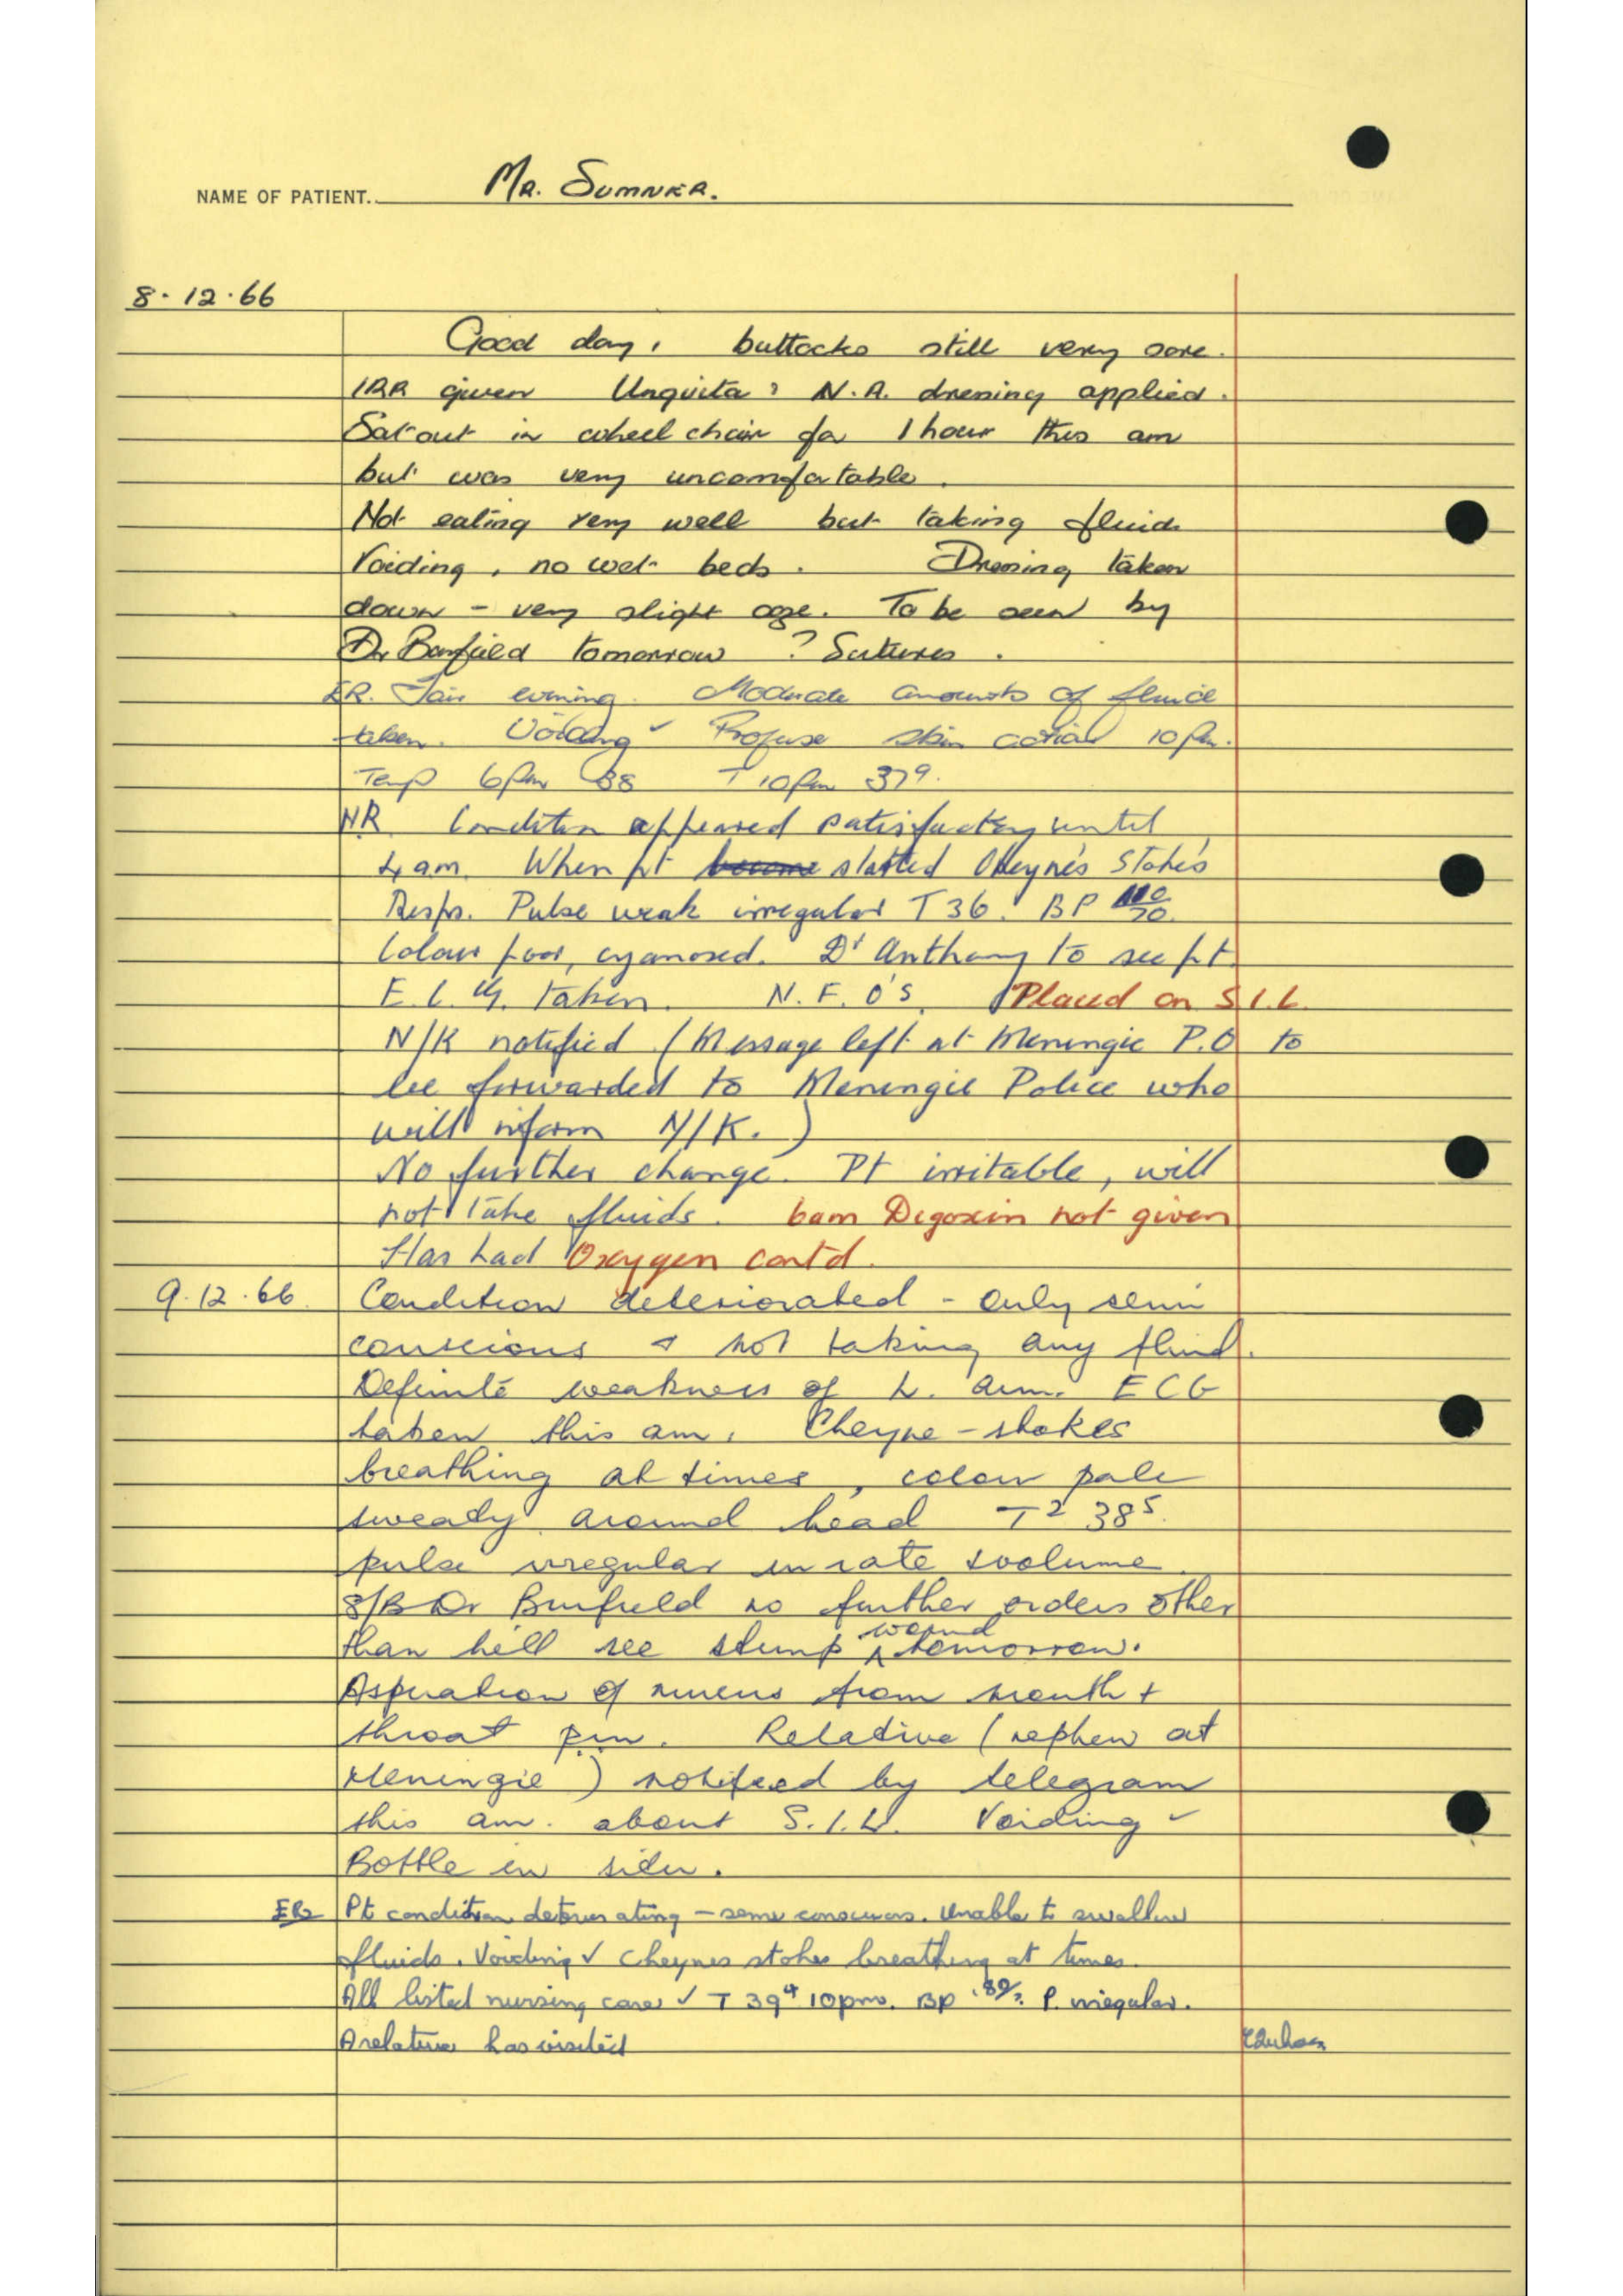 NAME OF PATIENT. MR. SUMNER.
8.12.66
Good day, buttocks still very sore.
IRR given Unguita & N.A. dressing applied.
Sat out in wheel chair for 1 hour this am
but was very uncomfortable.
Not eating very well but taking fluid
Voiding, no wet beds. Dressing taken
down - very slight ooze. To be seen by
Dr Barfield tomorrow ? Sutures.
ER. Fair evening. Moderate amounts of fluid
taken. Voiding ✓ Profuse skin action 10 pm.
Temp 6pm 38 T 10pm 37⁹.
NR Condition appeared satisfactory until
4 am. When pt started Cheyne's Stokes
Resps. Pulse weak irregular T 36. BP 110/70.
Colour poor, cyanosed. Dr Anthony to see pt.
E.C.G. taken. N.F.O's. Placed on S.I.L.
N/K notified (Message left at Meningie P.O to
be forwarded to Meningie Police who
will inform N/K.)
No further change. Pt irritable, will
not take fluids. 6am Digoxin not given
Has had Oxygen cont'd.
9.12.66 Condition deteriorated - only semi
conscious & not taking any fluid.
Definite weakness of L. arm. ECG
taken this am. Cheyne-stokes
breathing at times, colour pale
sweaty around head T² 38⁵.
pulse irregular in rate & volume
S/B Dr Burfield no further orders other
than he'll see stump wound tomorrow.
Aspiration of mucus from mouth +
throat prn. Relative (nephew at
Meningie) notified by telegram
this am. about S.I.L. Voiding ✓
Bottle in situ.
ER Pt condition deteriorating - semi conscious. Unable to swallow
fluids. Voiding ✓ Cheynes stokes breathing at times.
All listed nursing care ✓ T 39⁴ 10pm. BP P. irregular.
A relative has visited